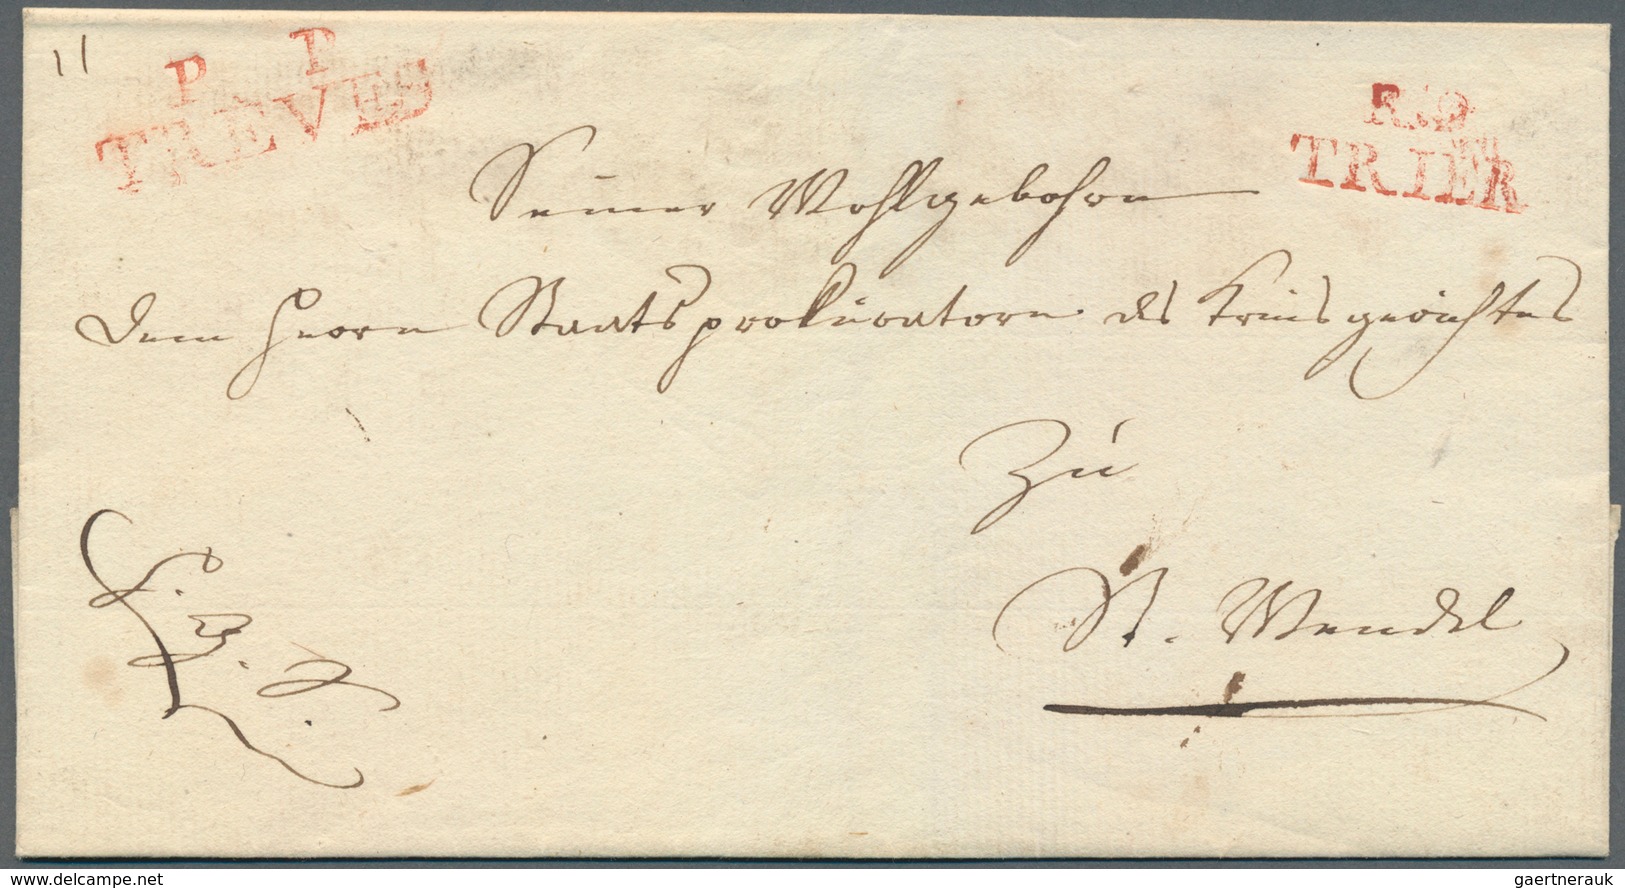 11
P P
TREVES
R.9
TRIER
Seiner Wohlgebohrn
dem Herrn Staatsprokuratorn des Kreisgerichtes
Zu
St. Wendel
www.delcampe.net
gaertnerauk